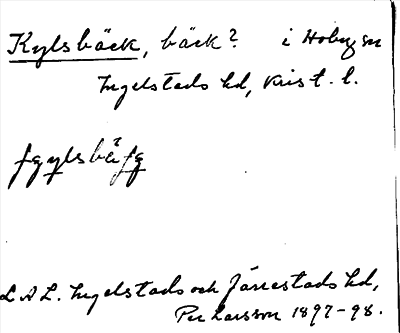 Kylsbäck, bäck? i Hoby sn
Ingelstads hd, Krist. l.
fqylsbäfq
L A L. Ingelstads och Järrestads hd,
Per Larsson 1897-98.